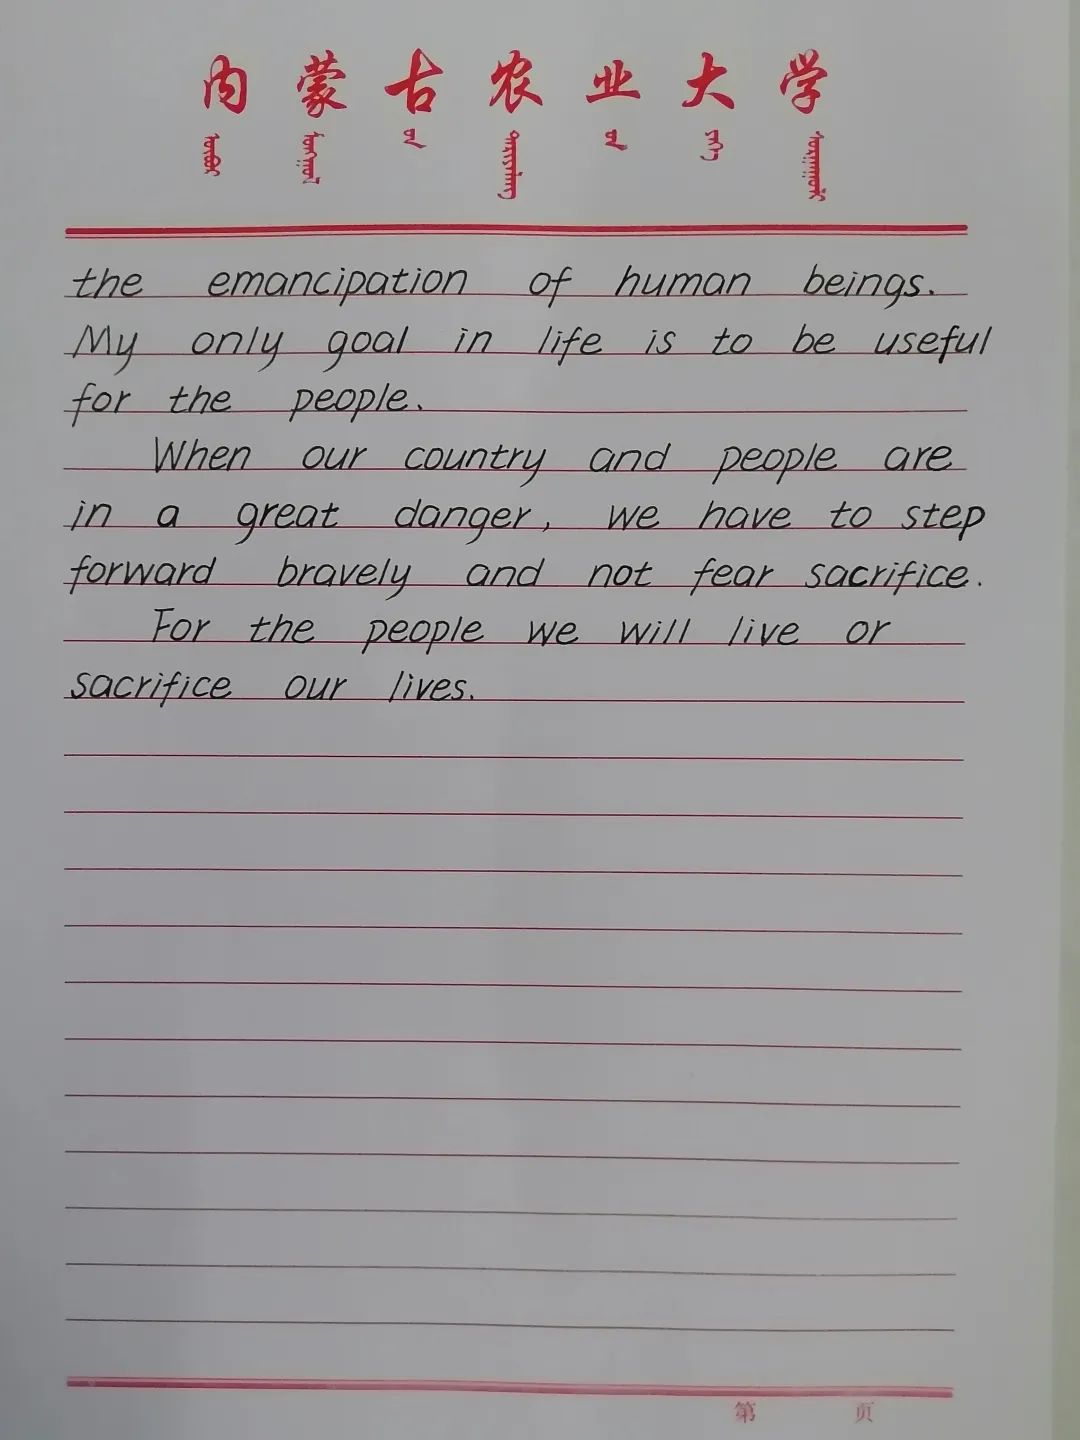 内蒙古农业大学
the emancipation of human beings.
My only goal in life is to be useful
for the people.
When our country and people are
in a great danger, we have to step
forward bravely and not fear sacrifice.
For the people we will live or
sacrifice our lives.
第 页